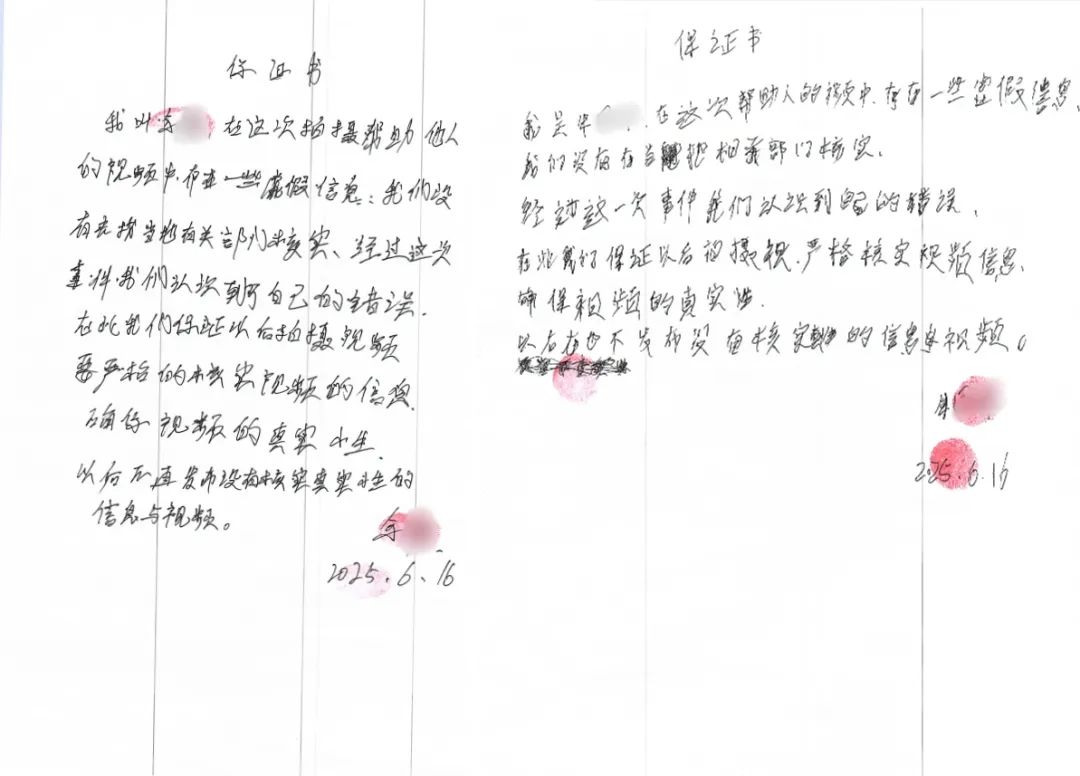 保证书
我叫 在这次拍摄帮助他人
的视频中存在一些虚假信息：我们没
有去找当地有关部门核实、经过这次
事件我们认识到了自己的错误.
在此我们保证以后拍摄视频
要严格的核实视频的信息.
确保视频的真实性.
以后不再发布没有核实真实性的
信息与视频。
2025.6、16
保证书
我是 在这次帮助人的视频中.存在一些虚假信息、
我们没有在当地相关部门核实.
经过这一次事件我们认识到 的错误、
在此我们保证以后拍摄视.严格核实视频信息、
确保视频的真实性.
以后 不发布没有核实 的信息与视频。
2025.6.16